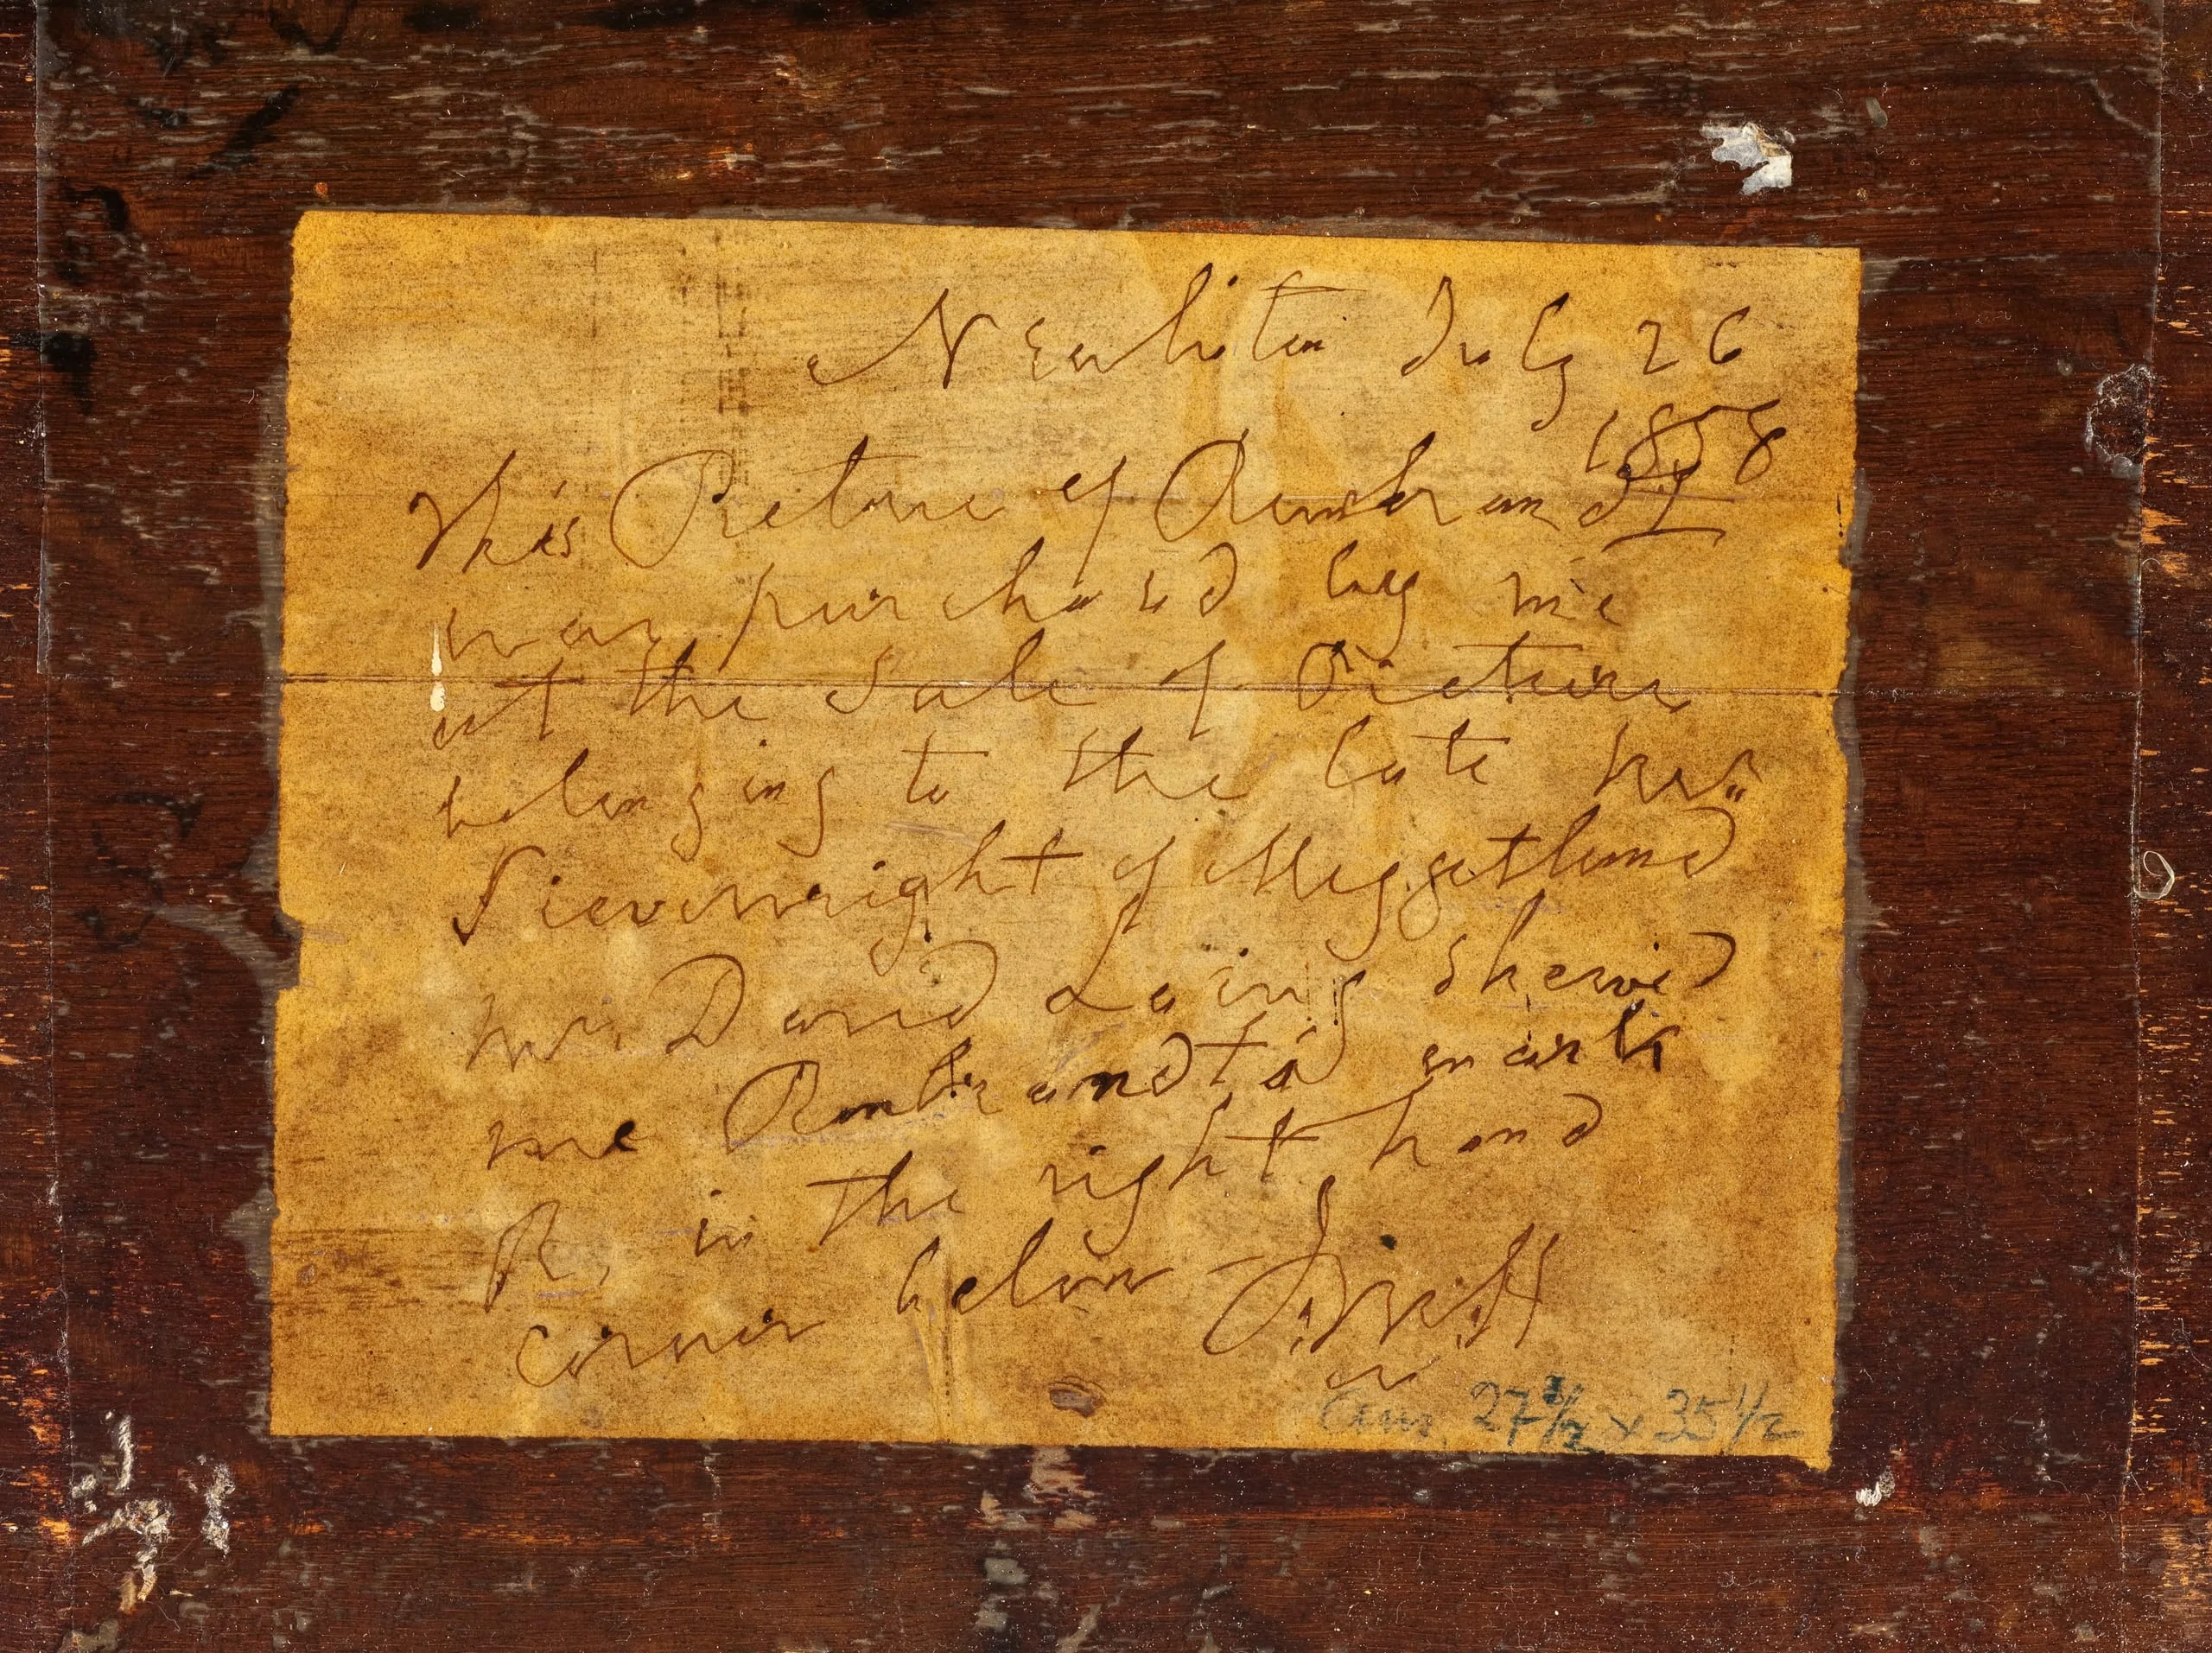 Newliston July 26
1858
This Picture of Rembrandt
was purchased by me
at the Sale of Pictures
belonging to the late
Sievewright of Meggetland
Mr. David Laing shewed
me Rembrandt's mark
R. in the right hand
corner below –
27 1/2 x 35 1/2